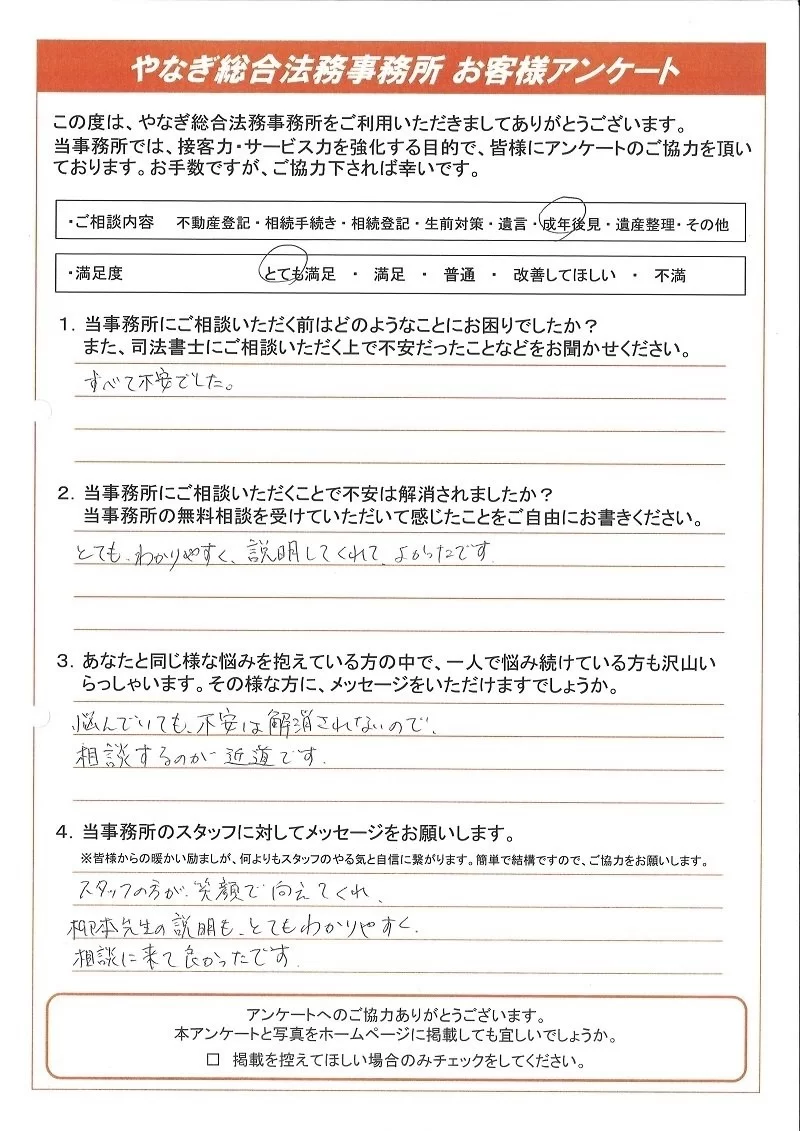 やなぎ総合法務事務所 お客様アンケート
この度は、やなぎ総合法務事務所をご利用いただきましてありがとうございます。
当事務所では、接客力・サービス力を強化する目的で、皆様にアンケートのご協力を頂い
ております。お手数ですが、ご協力下されば幸いです。
・ご相談内容 不動産登記・相続手続き・相続登記・生前対策・遺言・成年後見・遺産整理・その他
・満足度 とても満足 ・ 満足 ・ 普通 ・ 改善してほしい ・ 不満
1．当事務所にご相談いただく前はどのようなことにお困りでしたか？
また、司法書士にご相談いただく上で不安だったことなどをお聞かせください。
すべて不安でした。
2．当事務所にご相談いただくことで不安は解消されましたか？
当事務所の無料相談を受けていただいて感じたことをご自由にお書きください。
とても、わかりやすく、説明してくれて、よかったです．
3．あなたと同じ様な悩みを抱えている方の中で、一人で悩み続けている方も沢山い
らっしゃいます。その様な方に、メッセージをいただけますでしょうか。
悩んでいても、不安は解消されないので、
相談するのが近道です．
4．当事務所のスタッフに対してメッセージをお願いします。
※皆様からの暖かい励ましが、何よりもスタッフのやる気と自信に繋がります。簡単で結構ですので、ご協力をお願いします。
スタッフの方が、笑顔で向えてくれ、
柳本先生の説明も、とてもわかりやすく、
相談に来て良かったです．
アンケートへのご協力ありがとうございます。
本アンケートと写真をホームページに掲載しても宜しいでしょうか。
□ 掲載を控えてほしい場合のみチェックをしてください。